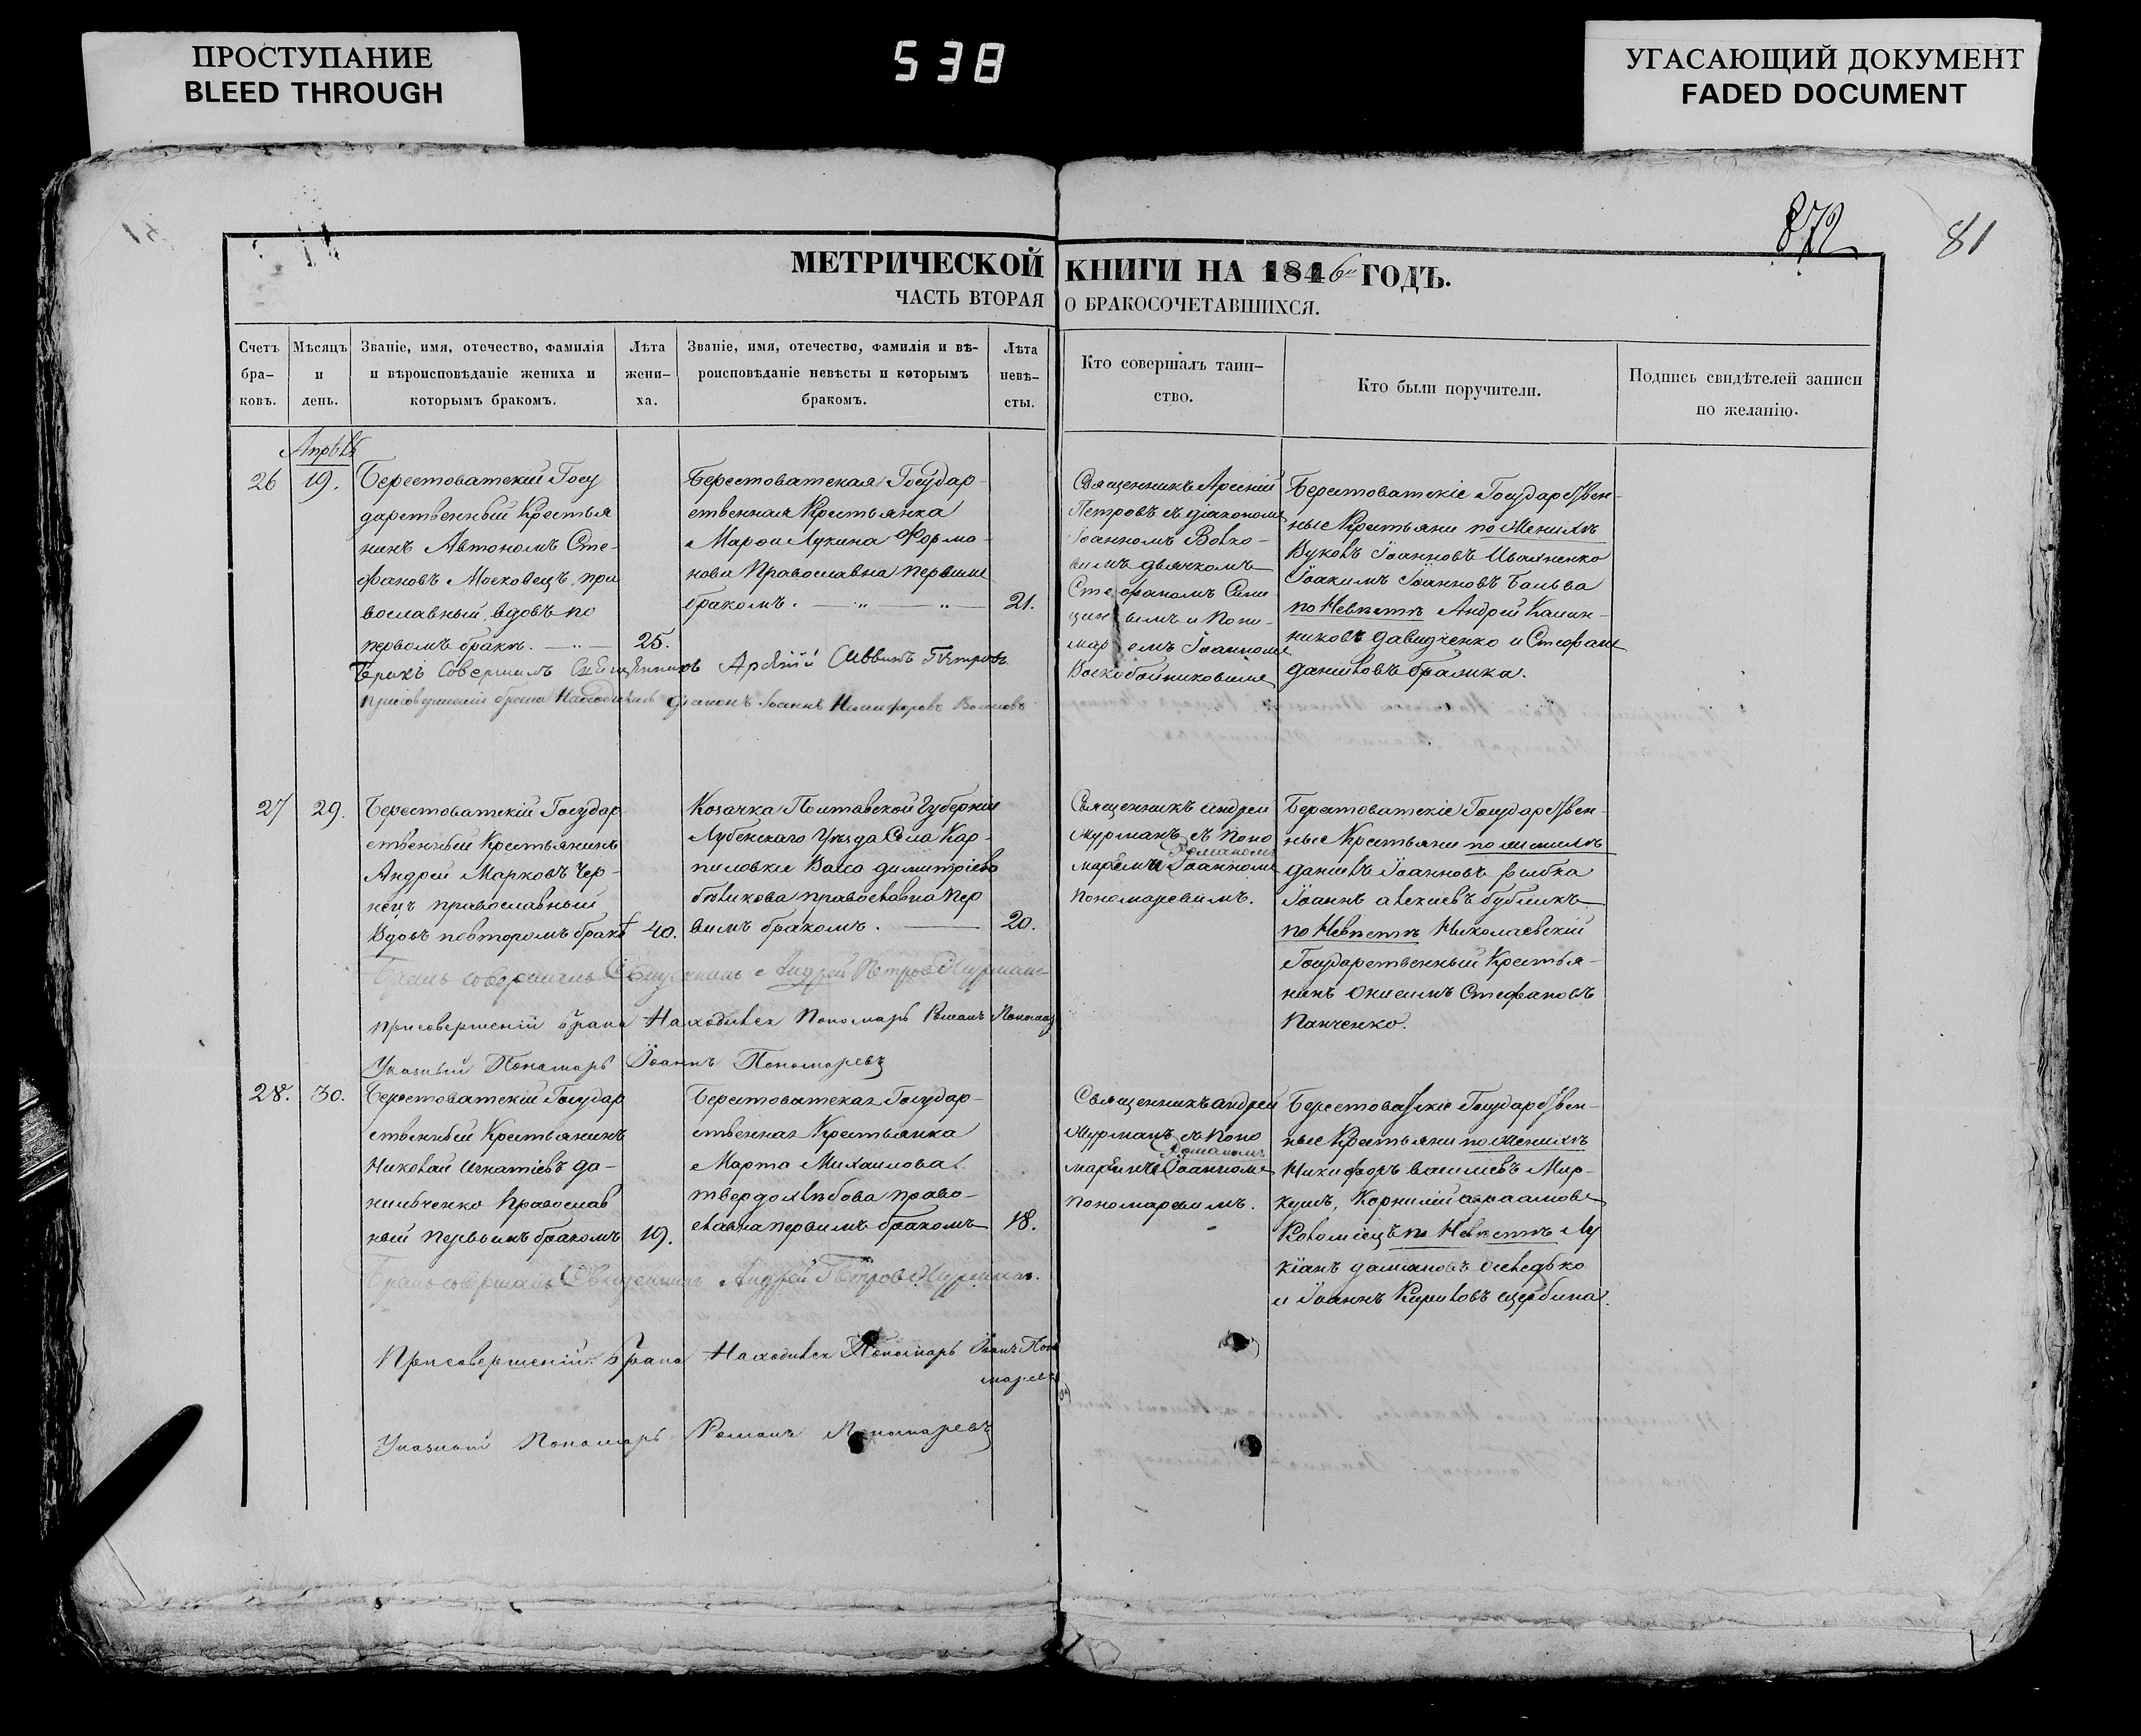 ПРОСТУПАНИЕ
BLEED THROUGH
538
УГАСАЮЩИЙ ДОКУМЕНТ
FADED DOCUMENT
872
81
МЕТРИЧЕСКОЙ КНИГИ НА 1846 ГОДЪ.
ЧАСТЬ ВТОРАЯ О БРАКОСОЧЕТАВШИХСЯ.
Счетъ бра-ковъ.
Мѣсяцъ и день.
Званіе, имя, отечество, фамилія
и вѣроисповѣданіе жениха и
которымъ бракомъ.
Лѣта жени-ха.
Званіе, имя, отечество, фамилія и вѣ-
роисповѣданіе невѣсты и которымъ
бракомъ.
Лѣта невѣ-сты.
Кто совершалъ таин-
ство.
Кто были поручители.
Подпись свидѣтелей записи
по желанію.
26
19.
Берестоватский Госу
дарственный Крестья
нинъ Автономъ Сте-
фановъ Московецъ, пра
вославный, вдовъ по
первомъ бракѣ.
25.
Берестоватская Государ-
ственная Крестьянка
Лукина
Православна первымъ
бракомъ.
21.
Священникъ Арсеній
Петровъ съ діакономъ
Іоанномъ Волко-
вымъ дьячкомъ
Стефаномъ
и Поно-
Іоанномъ
Воскобойниковымъ
Берестоватскіе Государствен-
ные Крестьяне по Женихѣ
Іоанновъ Иваненко
Іоакимъ Іоанновъ
по Невѣстѣ Андрей Калин-
никовъ Давидченко и Стефанъ
Даниловъ
Бракъ Совершилъ Священникъ Арсеній Петровъ
Присовершеніи брака Находился Діаконъ Іоаннъ Никифоровъ
27
29.
Берестоватскій Государ
ственный Крестьянинъ
Андрей Марковъ Чер-
нецъ православный
Вдовъ повторомъ бракѣ
40.
Козачка Полтавской Губерніи
Лубенскаго Уѣзда Села Кар-
пиловки Васса Димитріева
православна пер
вымъ бракомъ.
20.
Священникъ Андрей
Мурманъ съ Поно
Романомъ
маремъ и Іоанномъ
Пономаревымъ.
Берестоватскіе Государствен-
ные Крестьяне по женихѣ
Даніилъ Іоанновъ Рыбка
Іоаннъ Алексіевъ Бубликъ
по Невѣстѣ Николаевскій
Государственный Крестья-
нинъ Онисимъ Стефановъ
Панченко.
Бракъ совершилъ Священникъ Андрей Петровъ Мурманъ
Присовершеніи брака Находился Пономарь Романъ
Указный Пономарь Іоаннъ Пономаревъ
28.
30.
Берестоватскій Государ
ственный Крестьянинъ
Николай Игнатіевъ Да-
нильченко Православ
ный первымъ бракомъ
19.
Берестоватская Государ-
ственная Крестьянка
Марта Михаилова
Твердохлѣбова право-
славна первымъ бракомъ
18.
Священникъ Андрей
Мурманъ съ Поно
Романомъ
маремъ и Іоанномъ
Пономаревымъ.
Берестоватскіе Государствен-
ные Крестьяне по женихѣ
Никифоръ Василіевъ Мир-
Корнилій Авраамовъ
Коломіецъ по Невѣстѣ Лу
кіанъ Даміановъ
и Іоаннъ Кириловъ Щербина.
Бракъ совершилъ Священникъ Андрей Петровъ Мурманъ.
Присовершеніи брака Находился Пономарь Іоаннъ Поно
маревъ
Указный Пономарь Романъ Пономаревъ